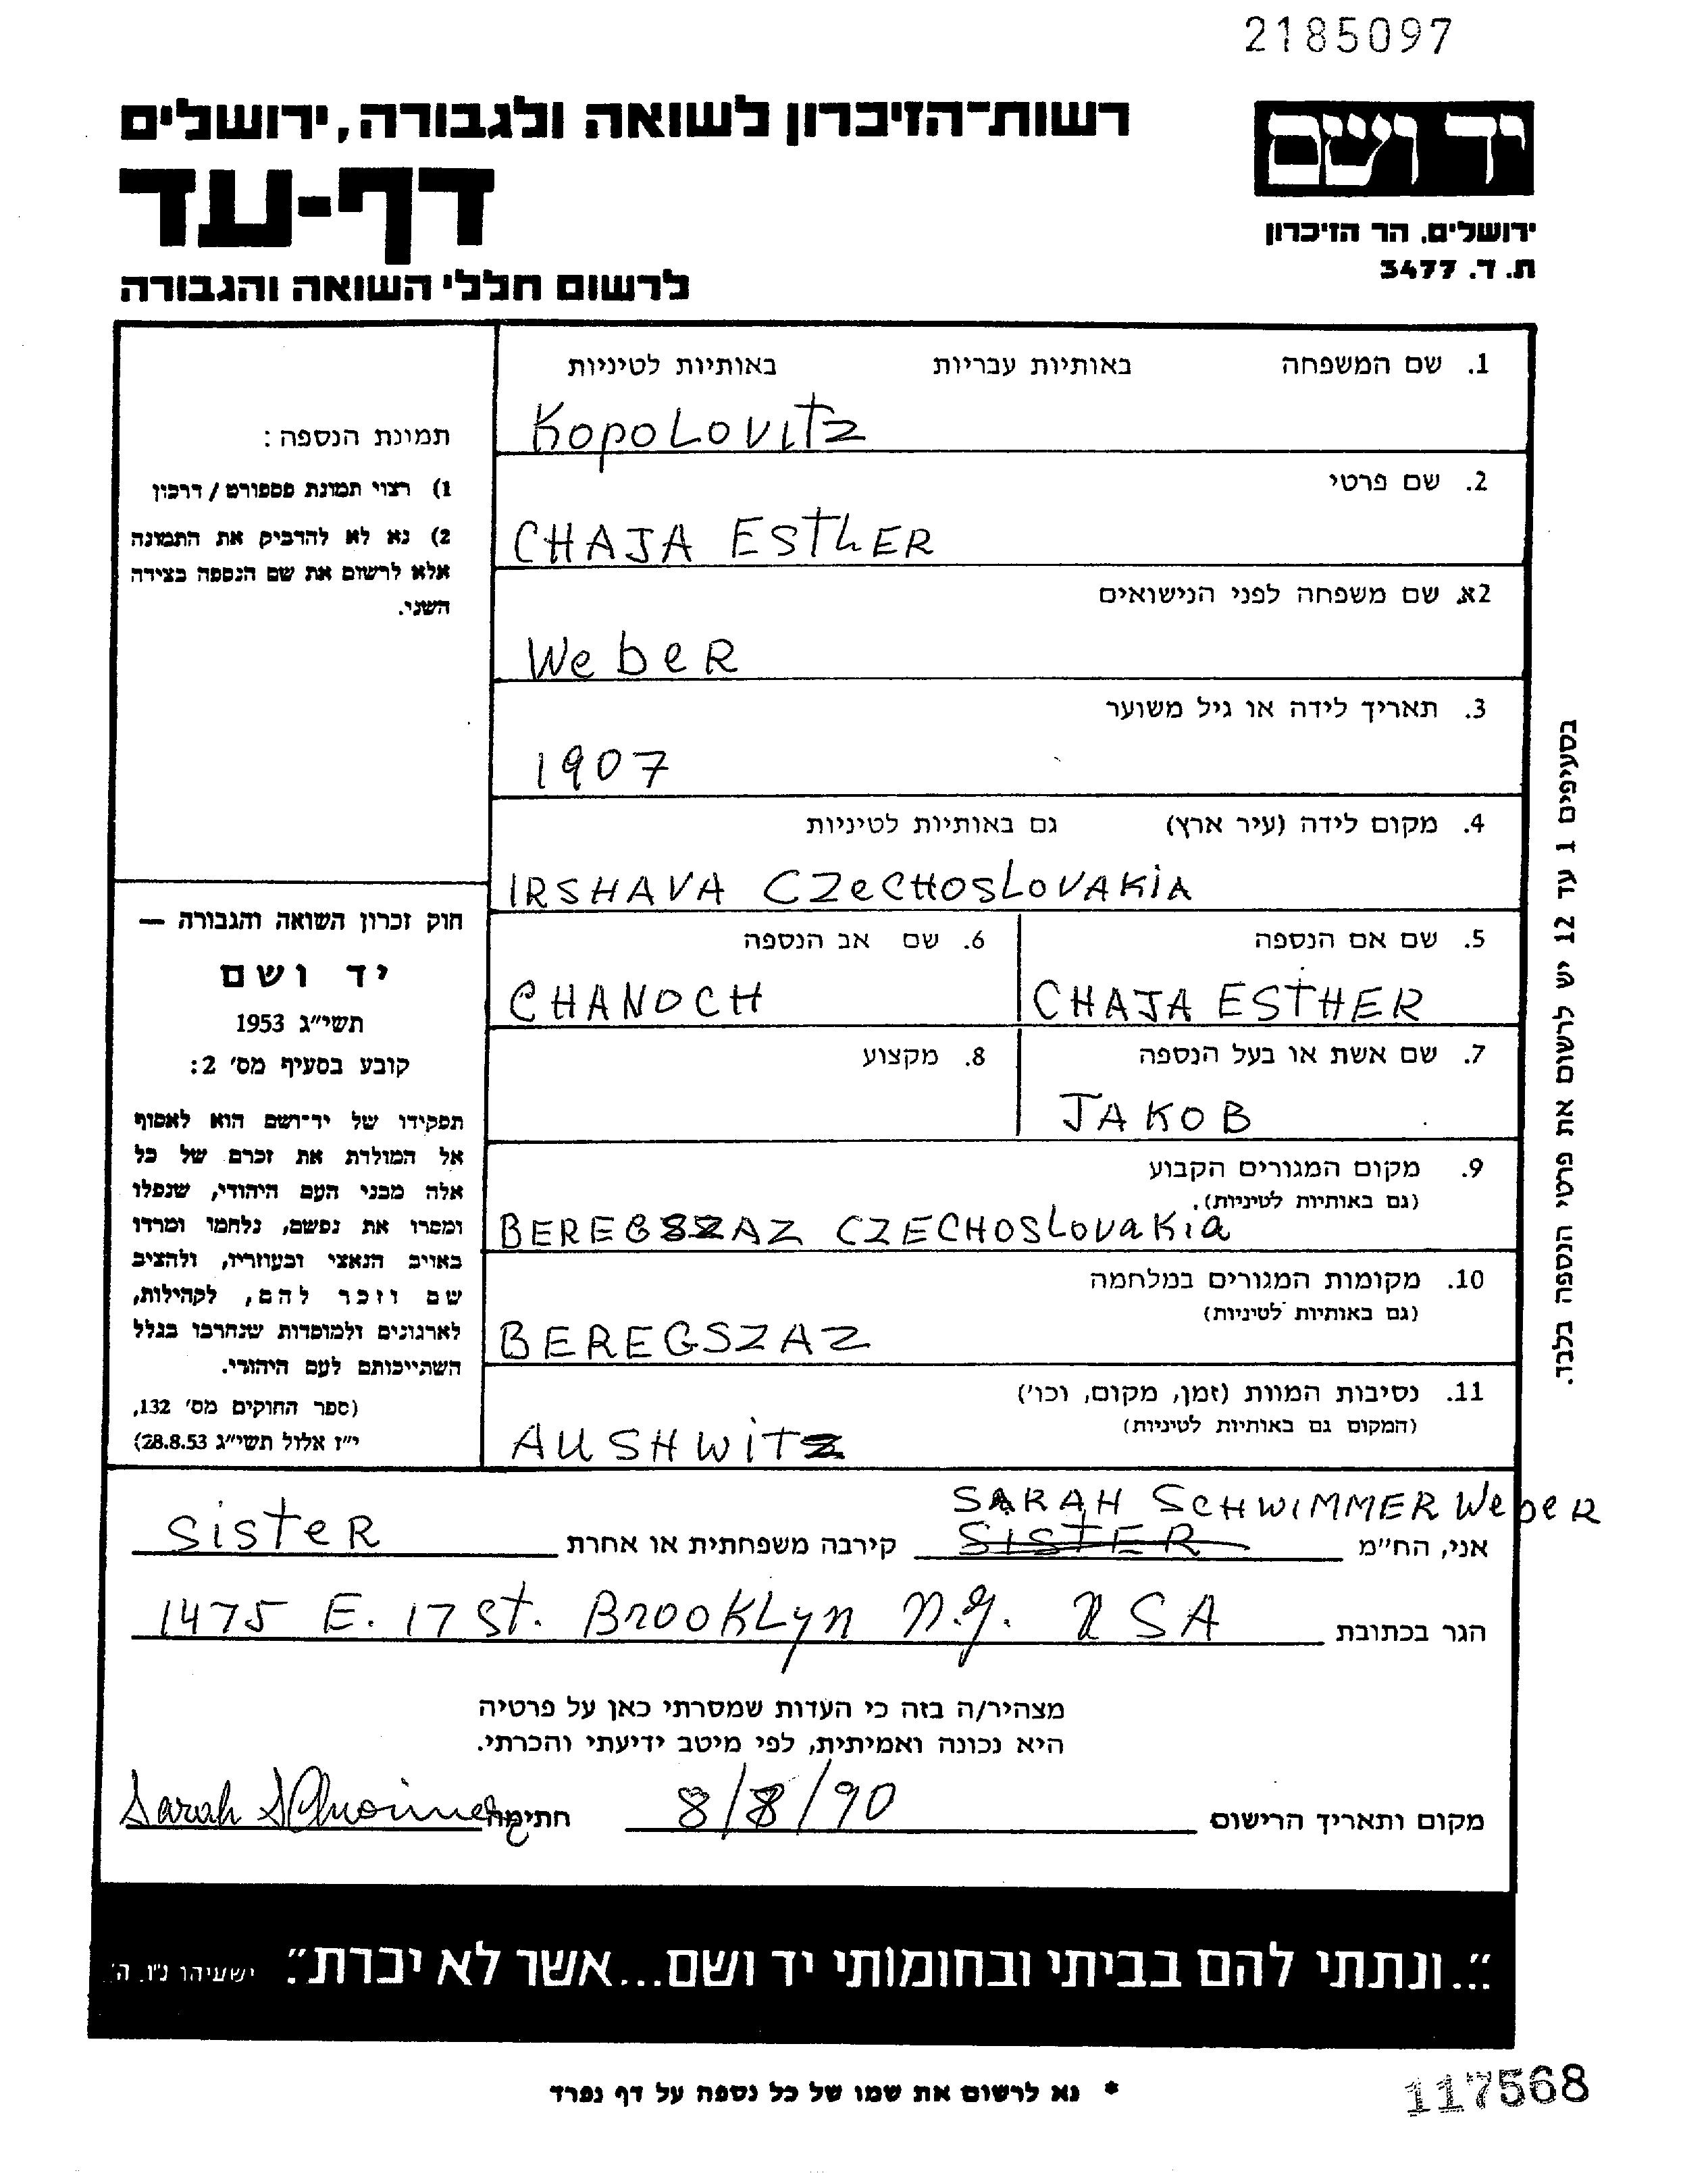 2185097
רשות-הזיכרון לשואה ולגבורה, ירושלים
דף-עד
לרשום חללי השואה והגבורה
יד ושם
ירושלים, הר הזיכרון
ת. ד. 3477
תמונת הנספה:
1) רצוי תמונת פספורט / דרכון
2) נא לא להדביק את התמונה
אלא לרשום את שם הנספה בצידה
השני.
חוק זכרון השואה והגבורה —
יד ושם
תשי״ג 1953
קובע בסעיף מס׳ 2:
תפקידו של יד־ושם הוא לאסוף
אל המולדת את זכרם של כל
אלה מבני העם היהודי, שנפלו
ומסרו את נפשם, נלחמו ומרדו
באויב הנאצי ובעוזריו, ולהציב
שם וזכר להם, לקהילות,
לארגונים ולמוסדות שנחרבו בגלל
השתייכותם לעם היהודי.
(ספר החוקים מס׳ 132,
י״ז אלול תשי״ג 28.8.53)
1. שם המשפחה באותיות עבריות באותיות לטיניות
KopoLovitz
2. שם פרטי
CHAJA ESThER
2א. שם משפחה לפני הנישואים
WebeR
3. תאריך לידה או גיל משוער
1907
4. מקום לידה (עיר ארץ) גם באותיות לטיניות
IRSHAVA CZeCHOSLOVAKiA
5. שם אם הנספה
CHAJA ESTHER
6. שם אב הנספה
CHANOCH
7. שם אשת או בעל הנספה
JAKOB
8. מקצוע
9. מקום המגורים הקבוע
(גם באותיות לטיניות).
BEREGSZAZ CZECHOSLovaKia
10. מקומות המגורים במלחמה
(גם באותיות לטיניות)
BEREGSZAZ
11. נסיבות המוות (זמן, מקום, וכו׳)
(המקום גם באותיות לטיניות)
AUSHWiTZ
בסעיפים 1 עד 12 יש לרשום את פרטי הנספה בלבד.
SARAH SCHWIMMER WebeR
אני, הח״מ SISTER קירבה משפחתית או אחרת SisteR
הגר בכתובת 1475 E. 17 St. BrooKLyn N.y. USA
מצהיר/ה בזה כי העדות שמסרתי כאן על פרטיה
היא נכונה ואמיתית, לפי מיטב ידיעתי והכרתי.
מקום ותאריך הרישום 8/8/90 חתימה Sarah Schwimmer
״...ונתתי להם בביתי ובחומותי יד ושם...אשר לא יכרת״. ישעיהו נ״ו. ה׳.
* נא לרשום את שמו של כל נספה על דף נפרד
117568